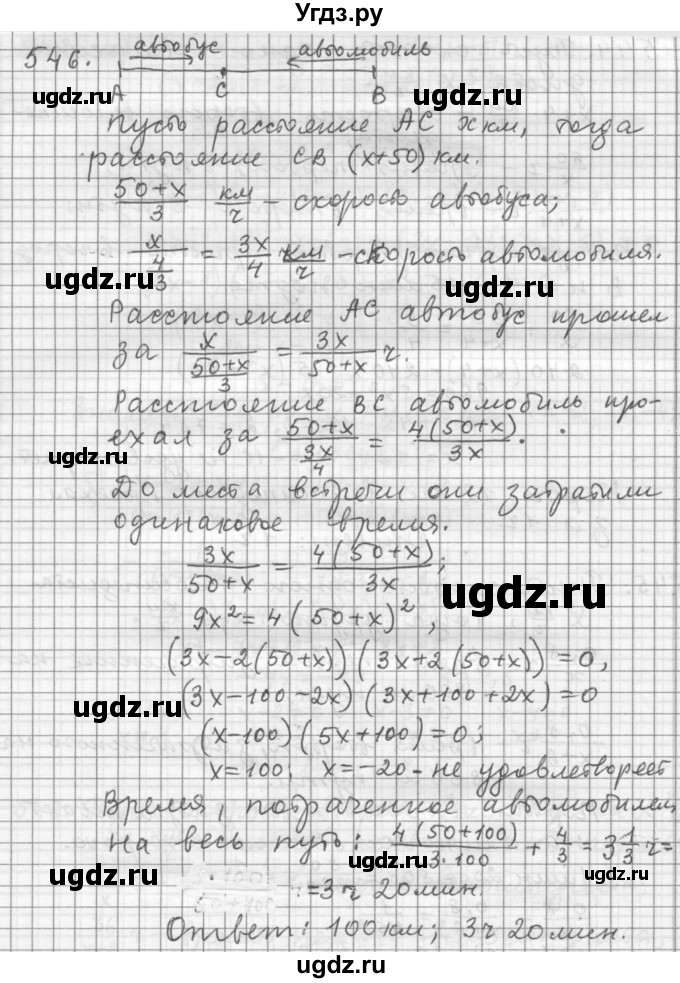 Угдз.ру
546. автобус автомобиль
A C B
Пусть расстояние AC x км, тогда
расстояние CB (x+50) км.
(50+x)/3 км/ч - скорость автобуса;
x/(4/3) = 3x/4 км/ч - скорость автомобиля.
Расстояние AC автобус прошел
за x/((50+x)/3) = 3x/(50+x) ч.
Расстояние BC автомобиль про-
ехал за (50+x)/(3x/4) = 4(50+x)/3x.
До места встречи они затратили
одинаковое время.
3x/(50+x) = 4(50+x)/3x;
9x² = 4(50+x)²,
(3x-2(50+x))(3x+2(50+x))=0,
(3x-100-2x)(3x+100+2x)=0
(x-100)(5x+100)=0;
x=100; x=-20 - не удовлетворяет
Время, потраченное автомобилем
на весь путь: 4(50+100)/(3·100) + 4/3 = 3 1/3 ч=
=3 ч 20 мин.
Ответ: 100 км; 3 ч 20 мин.
ugdz.ru
ugdz.ru
ugdz.ru
ugdz.ru
ugdz.ru
ugdz.ru
ugdz.ru
ugdz.ru
ugdz.ru
ugdz.ru
ugdz.ru
ugdz.ru